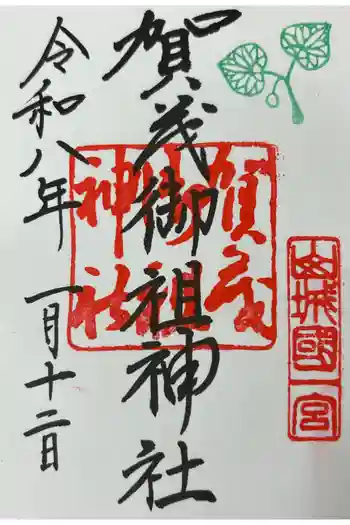 山城國一宮
賀茂御祖神社
賀茂御祖神社
令和八年 一月十二日